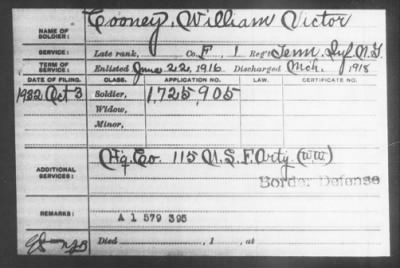 NAME OF SOLDIER: Cooney, William Victor
SERVICE: Late rank, Co. F, 1 Reg't Tenn. Inf. N.G.
TERM OF SERVICE: Enlisted June 22, 1916. Discharged Mch. 1918
DATE OF FILING. CLASS. APPLICATION NO. LAW. CERTIFICATE NO.
1932 Oct 3 Soldier, 1,725,905
Widow,
Minor,
ADDITIONAL SERVICES: Hq. Co. 115 U.S. F. Arty. (WW)
Border Defense
REMARKS: A 1 579 395
Died , 1 , at